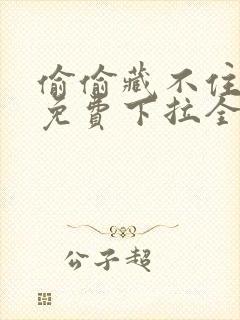 偷偷藏不住
免費下拉全
公子超